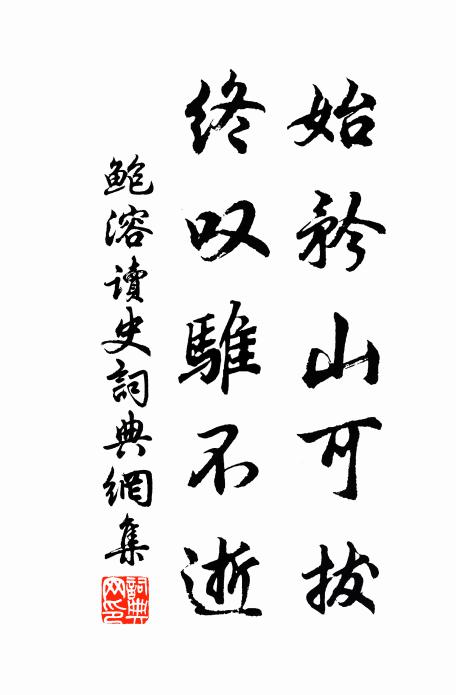 始矜山可拔
终叹骓不逝
鲍溶讀史詞典網集
詞典网印